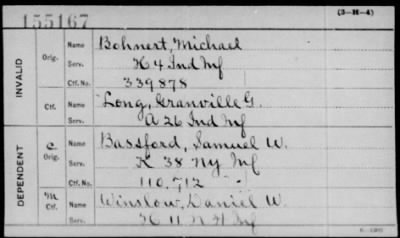 155167
(3-H-4)
INVALID
Orig.
Name Bohnert, Michael
Serv. K 4 Ind Inf
Ctf. No. 339878
Ctf.
Name Long, Granville G.
Serv. A 26 Ind Inf
DEPENDENT
C
Orig.
Name Bassford, Samuel W.
Serv. K 38 Ny Inf
Ctf. No. 110,712
M
Ctf.
Name Winslow, Daniel W.
Serv. 11 N H Inf